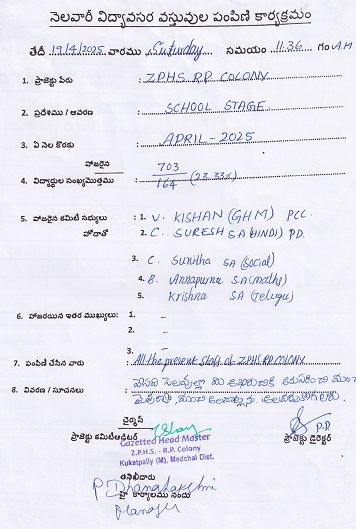 నెలవారీ విద్యావసర వస్తువుల పంపిణి కార్యక్రమం
తేదీ 19/4/2025 వారము Saturday సమయం 11.36 గం AM
1. ప్రాజెక్టు పేరు : Z.P.H.S. R.P. COLONY
2. ప్రదేశము / ఆవరణ : SCHOOL STAGE.
3. ఏ నెల కొరకు : APRIL - 2025
హాజరైన 703
4. విద్యార్థుల సంఖ్యమొత్తము : 164 (23.33%)
5. హాజరైన కమిటి సభ్యులు : 1. V. KISHAN (GHM) PCC.
హోదాతో 2. C. SURESH SA(HINDI) P.D.
3. C. Sunitha SA (Social)
4. B. Annapurna SA (maths)
5. Krishna SA (Telugu)
6. హాజరయిన ఇతర ముఖ్యులు: 1. -
2. -
3. -
7. పంపిణీ చేసిన వారు : All the present staff of Z.P.HS RP COLONY
8. వివరణ / సూచనలు : వేసవి సెలవుల్లో మీ
చైర్మన్
ప్రాజెక్టు కమిటిఆడిటర్ ప్రాజెక్టు డైరెక్టర్
P.D
Gazetted Head Master
Z.P.H.S. - R.P. Colony
Kukatpally (M), Medchal Dist.
తనిఖీదారు
P Dhanalakshmi
హై కార్యాలము నందు
Manager